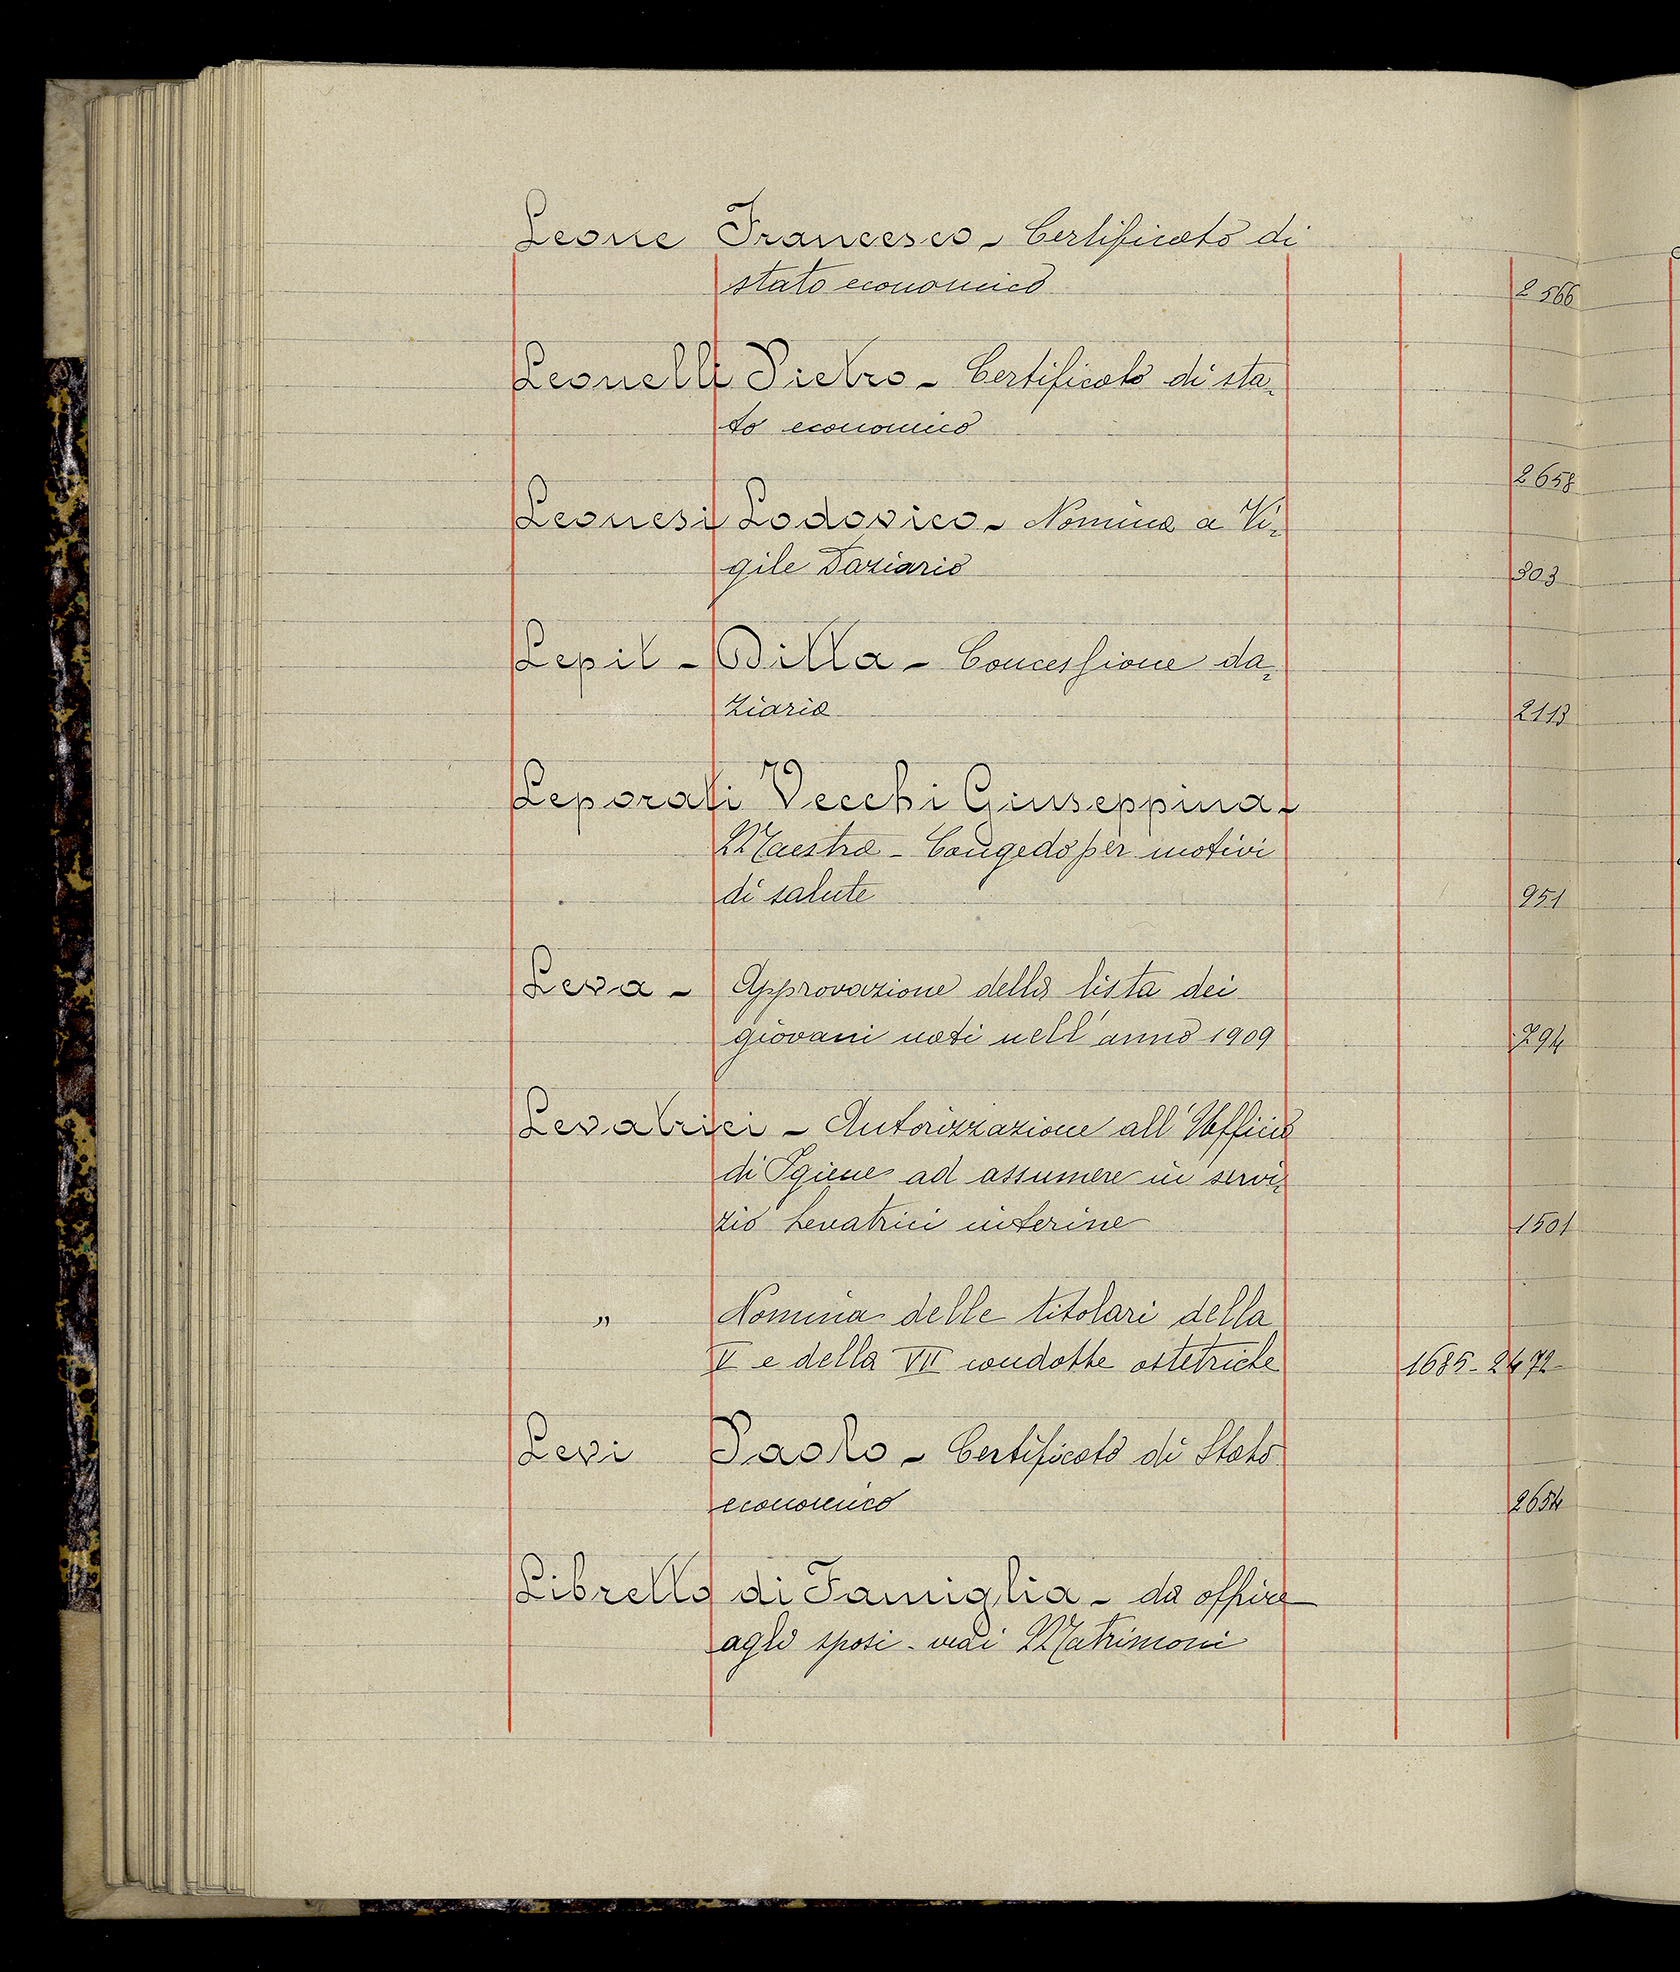 Leone Francesco - Certificato di
stato economico 2566
Leonelli Pietro - Certificato di sta=
to economico
2658
Leonesi Lodovico - Nomina a Vi=
gile Daziario 303
Lepit - Ditta - Concessione da=
ziaria 2113
Leporati Vecchi Giuseppina -
Maestra - Congedo per motivi
di salute 951
Leva - Approvazione della lista dei
giovani nati nell'anno 1909 294
Levatrici - Autorizzazione all'Ufficio
di Igiene ad assumere in servi=
zio Levatrici interine 1501
„ Nomina delle titolari della
V e della VII condotte ostetriche 1685 - 2472
Levi Paolo - Certificato di Stato
economico 2654
Libretto di Famiglia - da offrire
agli sposi - vedi Matrimoni